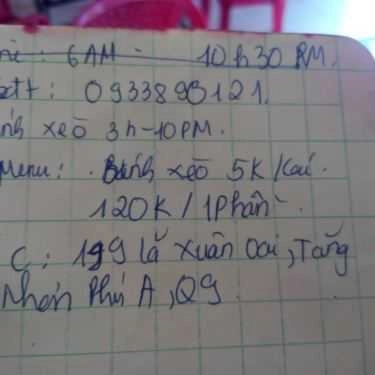 : 6AM - 10h30 PM.
sđt: 0933898121.
bánh xèo 3h-10PM.
Menu: Bánh xèo 5K/Cái.
120K/1Phần
C: 199 lã Xuân Oai, Tăng
Nhơn Phú A, Q9